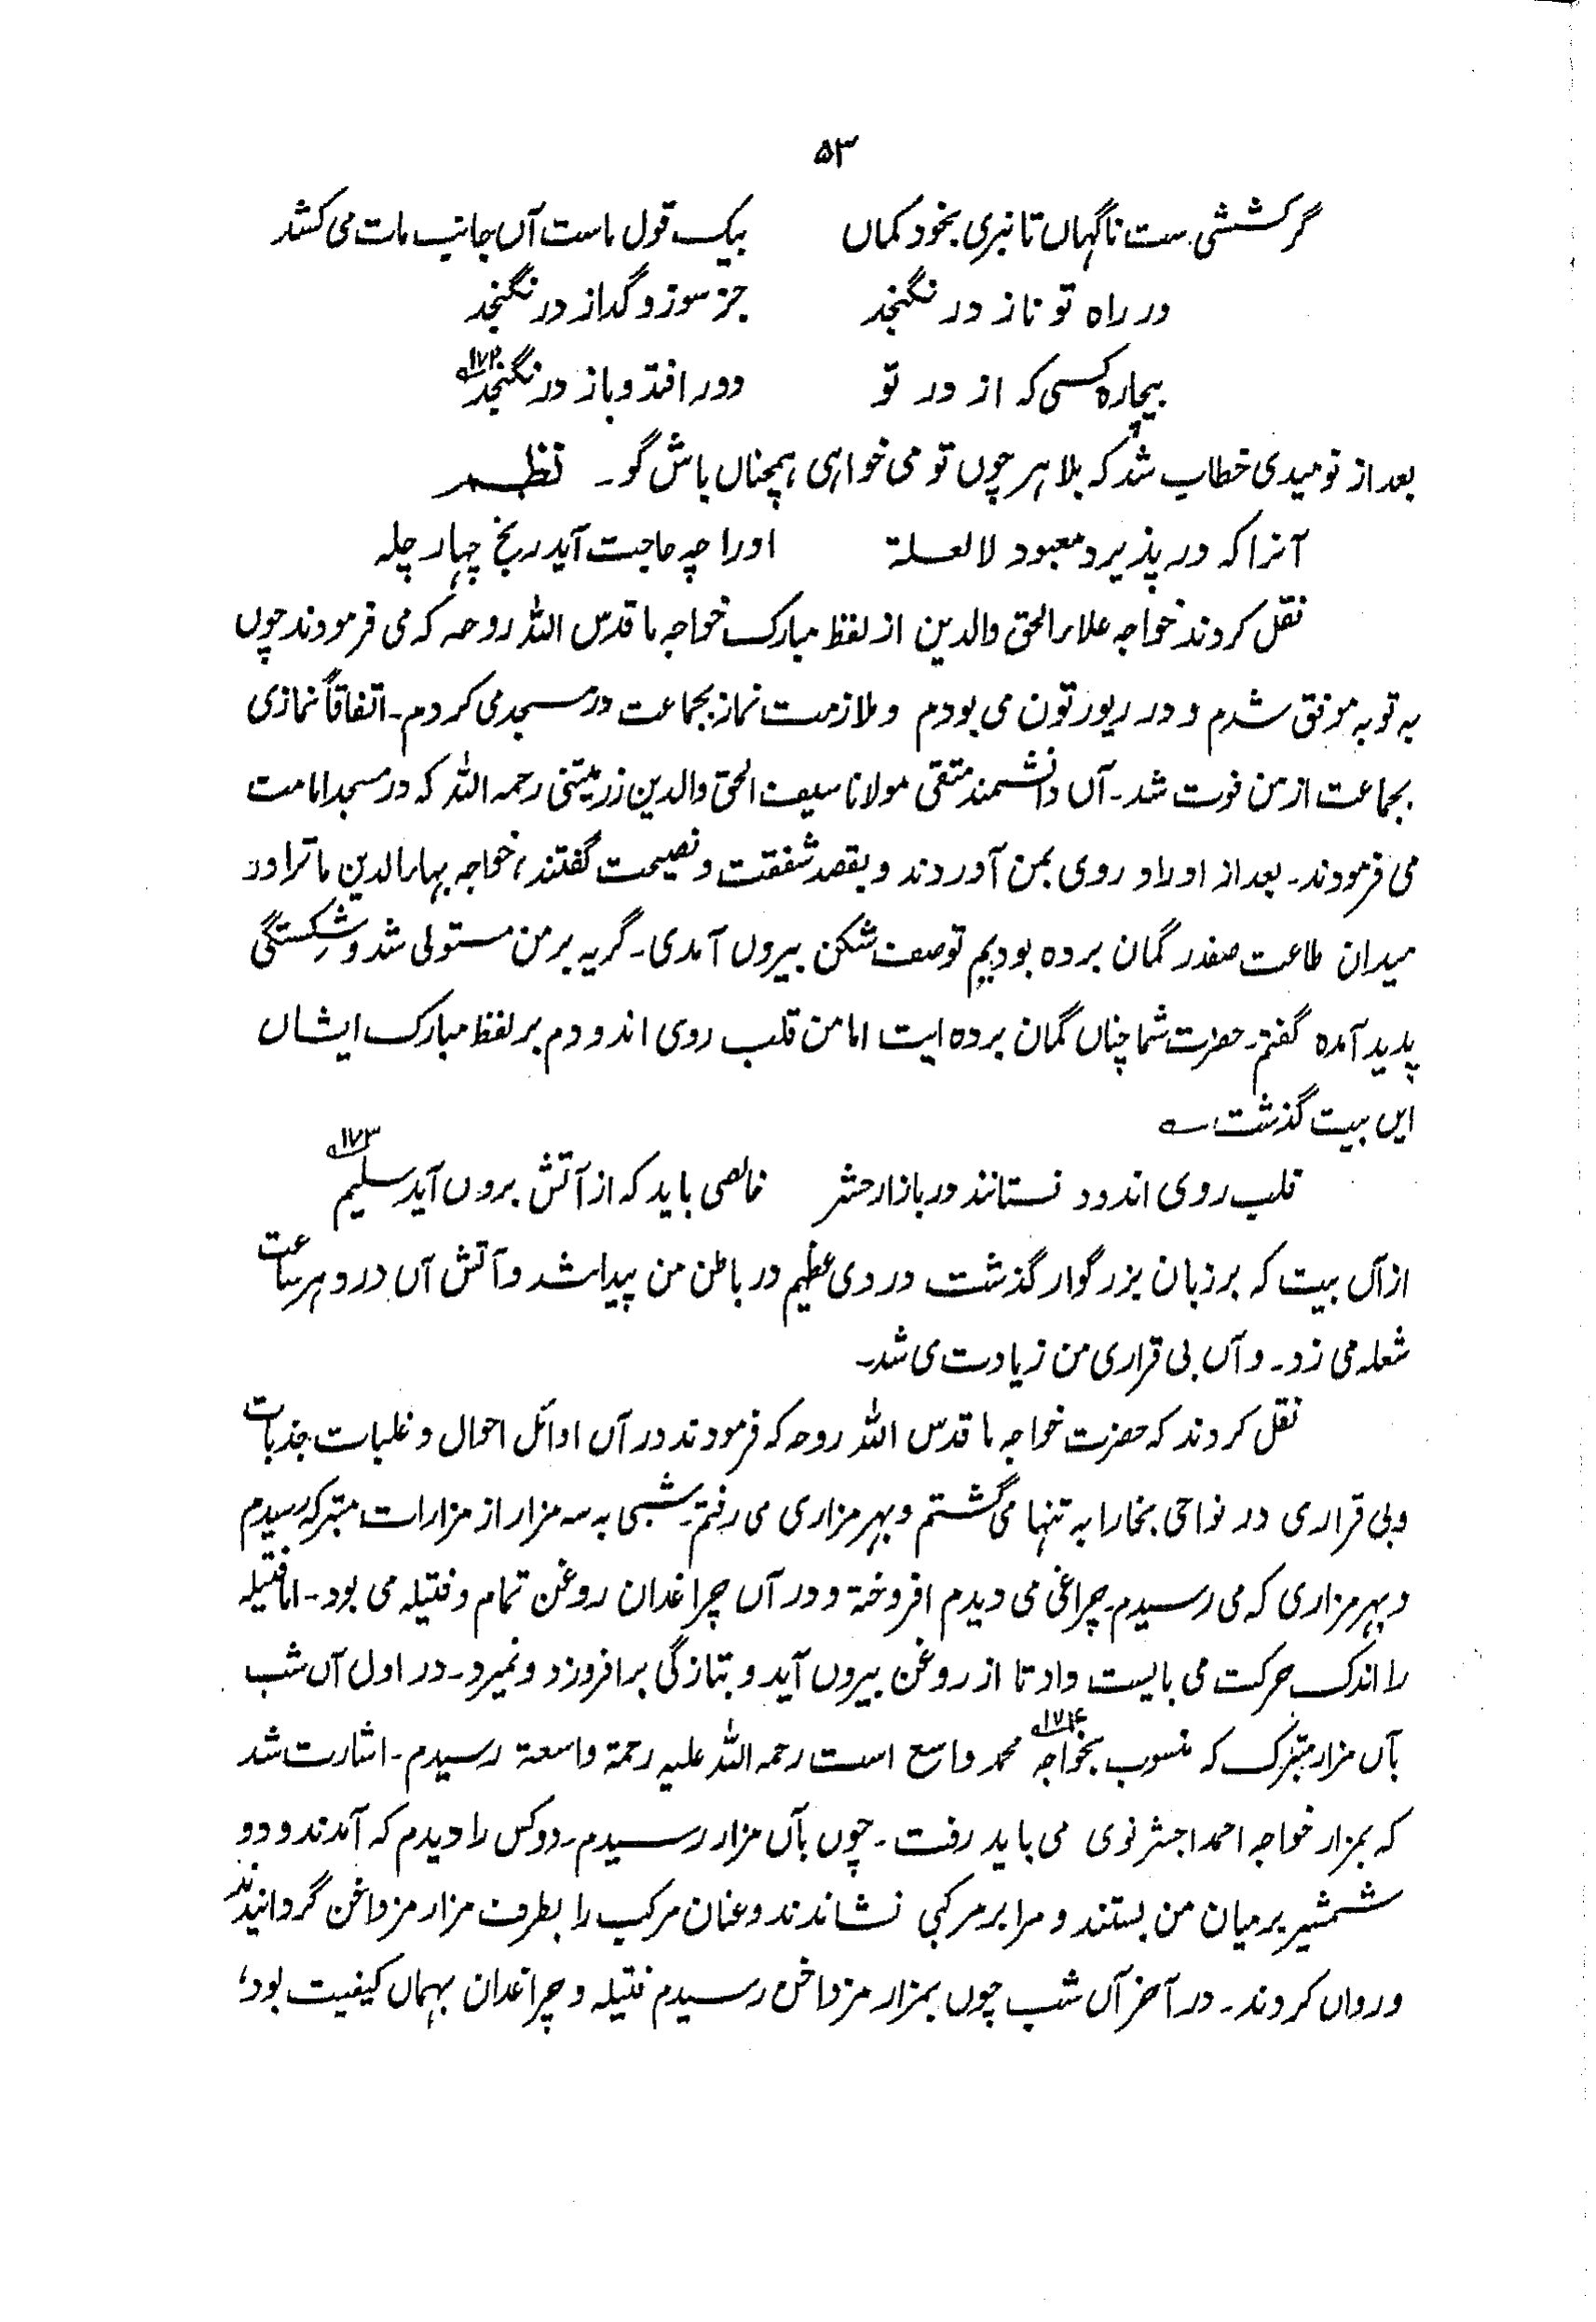 ۵۳
گر کششی ست ناگهاں تا نبری بخود گماں بیک قول ماست آں جانب مات می کشد
در راه تو ناز در نگنجد جز سوز و گداز در نگنجد
بیچاره کسی که از در تو دور افتد و باز در نگنجد ۱۷۲
بعد از نومیدی خطاب شد که بلا هر چوں تو می خواهی همچناں باش گو۔ نظم
آنرا که در پذیرد معبود لا لعلة او را چه حاجت آید رنج چهار چله
نقل کردند خواجه علاء الحق والدین از لفظ مبارک خواجه ما قدس الله روحه که می فرمودند چوں
به توبه موفق شدم و در ریورتون می بودم و ملازمت نماز بجماعت در مسجد می کردم۔ اتفاقاً نمازی
بجماعت از من فوت شد۔ آں دانشمند متقی مولانا سیف الحق والدین رحمه الله که در مسجد امامت
می فرمودند۔ بعد از اوراد روی بمن آوردند و بقصد شفقت و نصیحت گفتند، خواجه بهاء الدین ما ترا در
میدان طاعت صفدر گمان برده بودیم تو صف شکن بیروں آمدی۔ گریه بر من مستولی شد و شکستگی
پدید آمده گفتم۔ حضرت شما چناں گمان برده ایت اما من قلب روی اندودم بر لفظ مبارک ایشاں
ایں بیت گذشت ؎
قلب روی اندود نستانند در بازار حشر خالصی باید که از آتش بروں آید سلیم ۱۷۳
از آں بیت که بر زبان بزرگوار گذشت دردی عظیم در باطن من پیدا شد و آتش آں درد هر ساعت
شعله می زد۔ و آں بی قراری من زیادت می شد۔
نقل کردند که حضرت خواجه ما قدس الله روحه که فرمودند در آں اوائل احوال و غلبات جذبات
و بی قراری در نواحی بخارا به تنها می گشتم و بهر مزاری می رفتم۔ شبی به سه مزار از مزارات متبرکه رسیدم
و بهر مزاری که می رسیدم۔ چراغی می دیدم افروخته و در آں چراغدان روغن تمام و فتیله می بود۔ اما فتیله
را اندک حرکت می بایست داد تا از روغن بیروں آید و بتازگی بر افروزد و نمیرد۔ در اول آں شب
بآں مزار متبرک که منسوب بخواجه ۱۷۴ محمد واسع است رحمه الله علیه رحمة واسعة رسیدم۔ اشارت شد
که بمزار خواجه احمد اجفرنوی می باید رفت۔ چوں بآں مزار رسیدم۔ دو کس را دیدم که آمدند و دو
شمشیر بر میان من بستند و مرا بر مرکبی نشاندند و عنان مرکب را بطرف مزار مزداخن گردانیدند
و رواں کردند۔ در آخر آں شب چوں بمزار مزداخن رسیدم فتیله و چراغدان بهماں کیفیت بود،